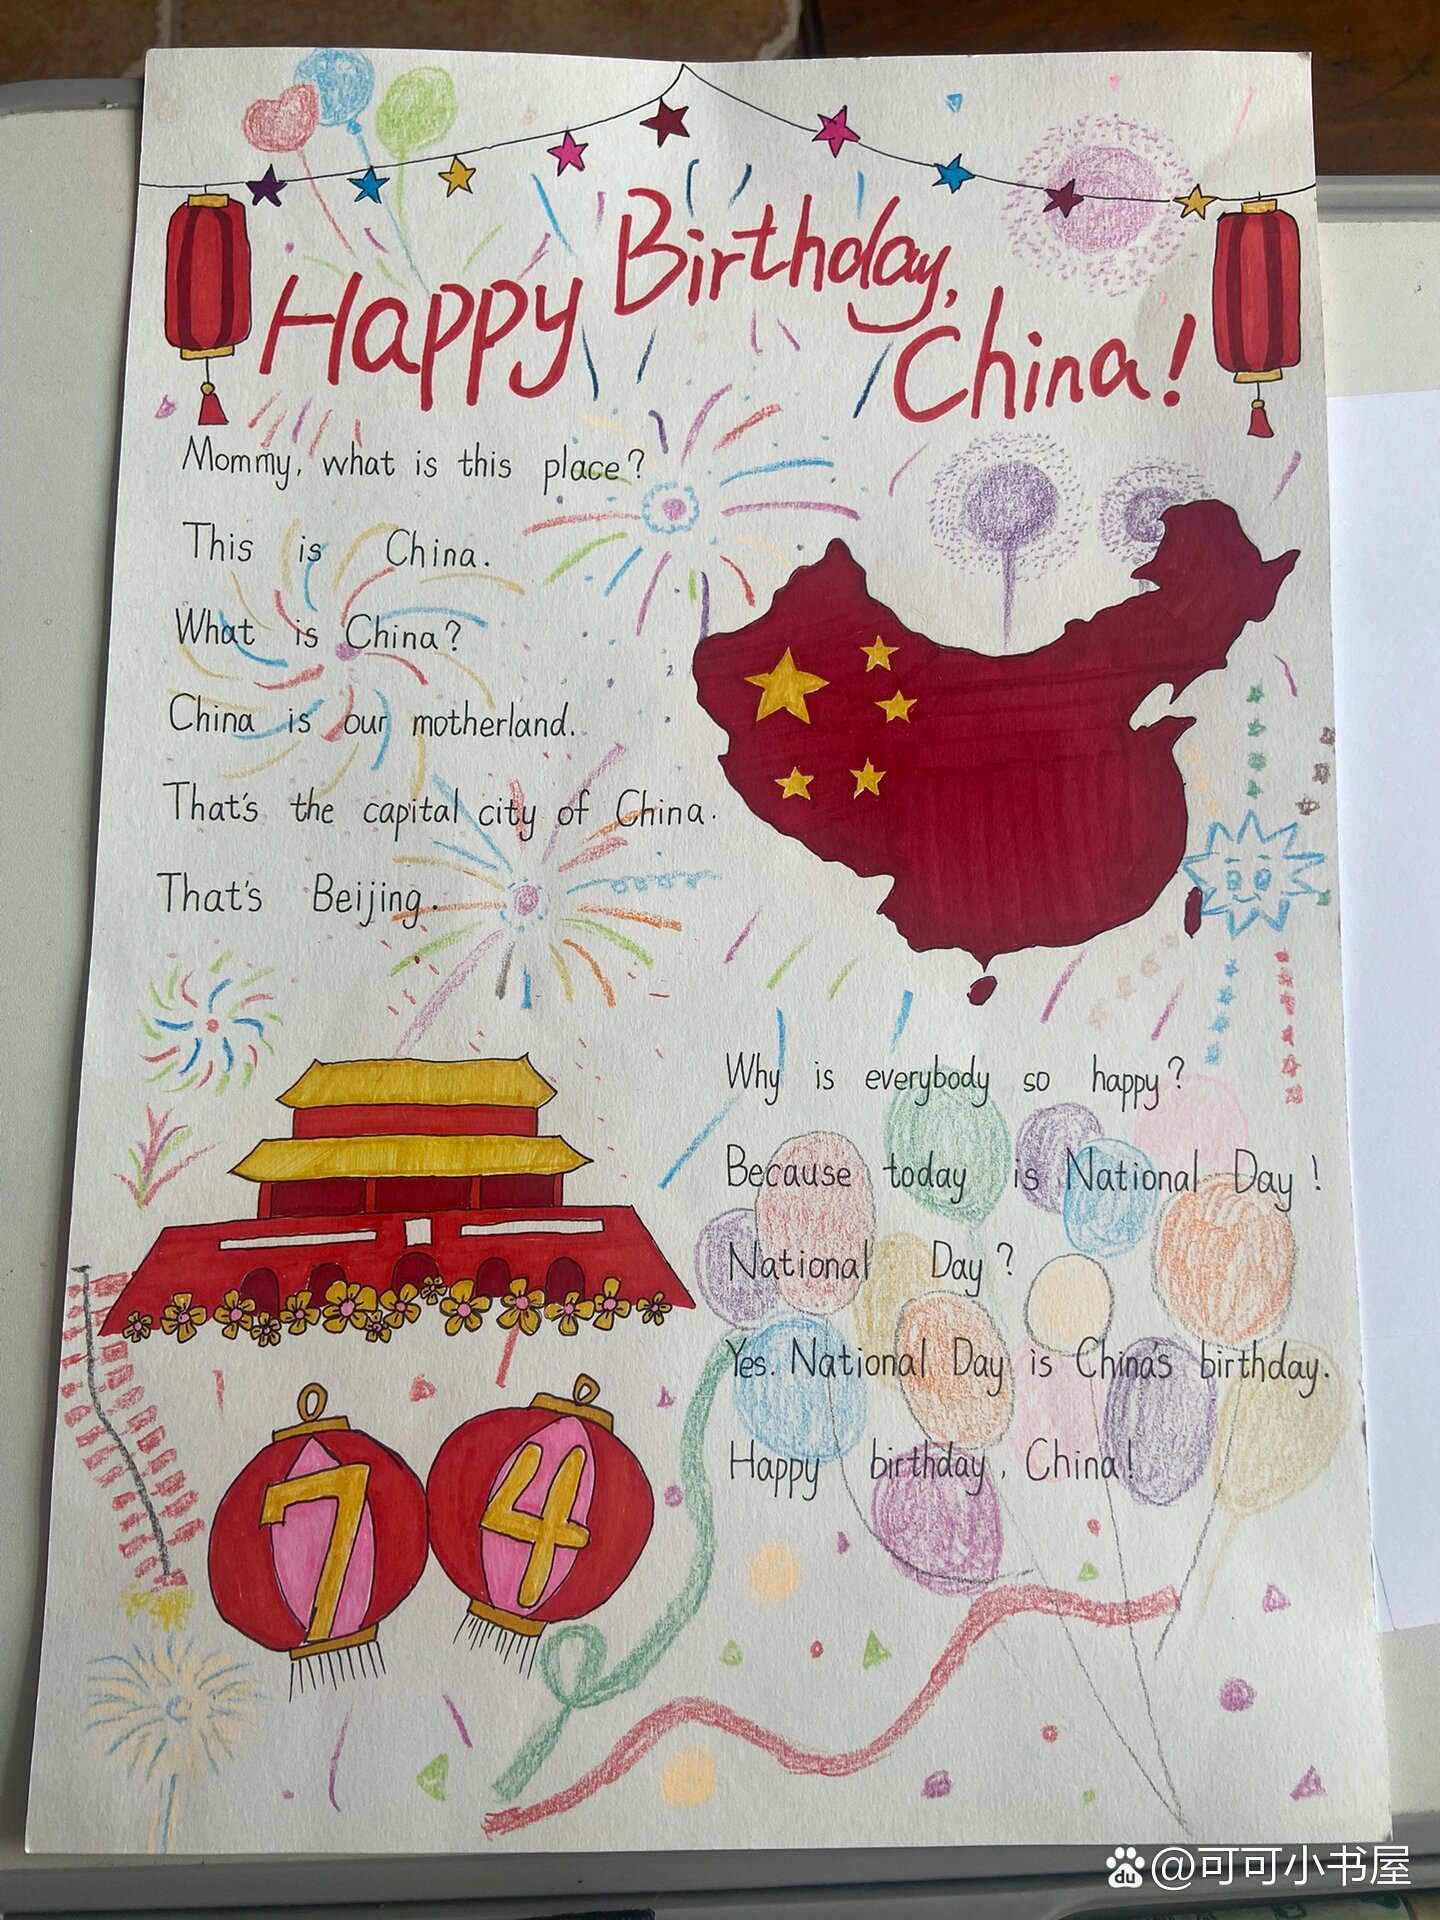 Happy Birthday,
China!
Mommy, what is this place?
This is China.
What is China?
China is our motherland.
That's the capital city of China.
That's Beijing.
Why is everybody so happy?
Because today is National Day!
National Day?
Yes. National Day is China's birthday.
Happy birthday, China!
74
du @可可小书屋